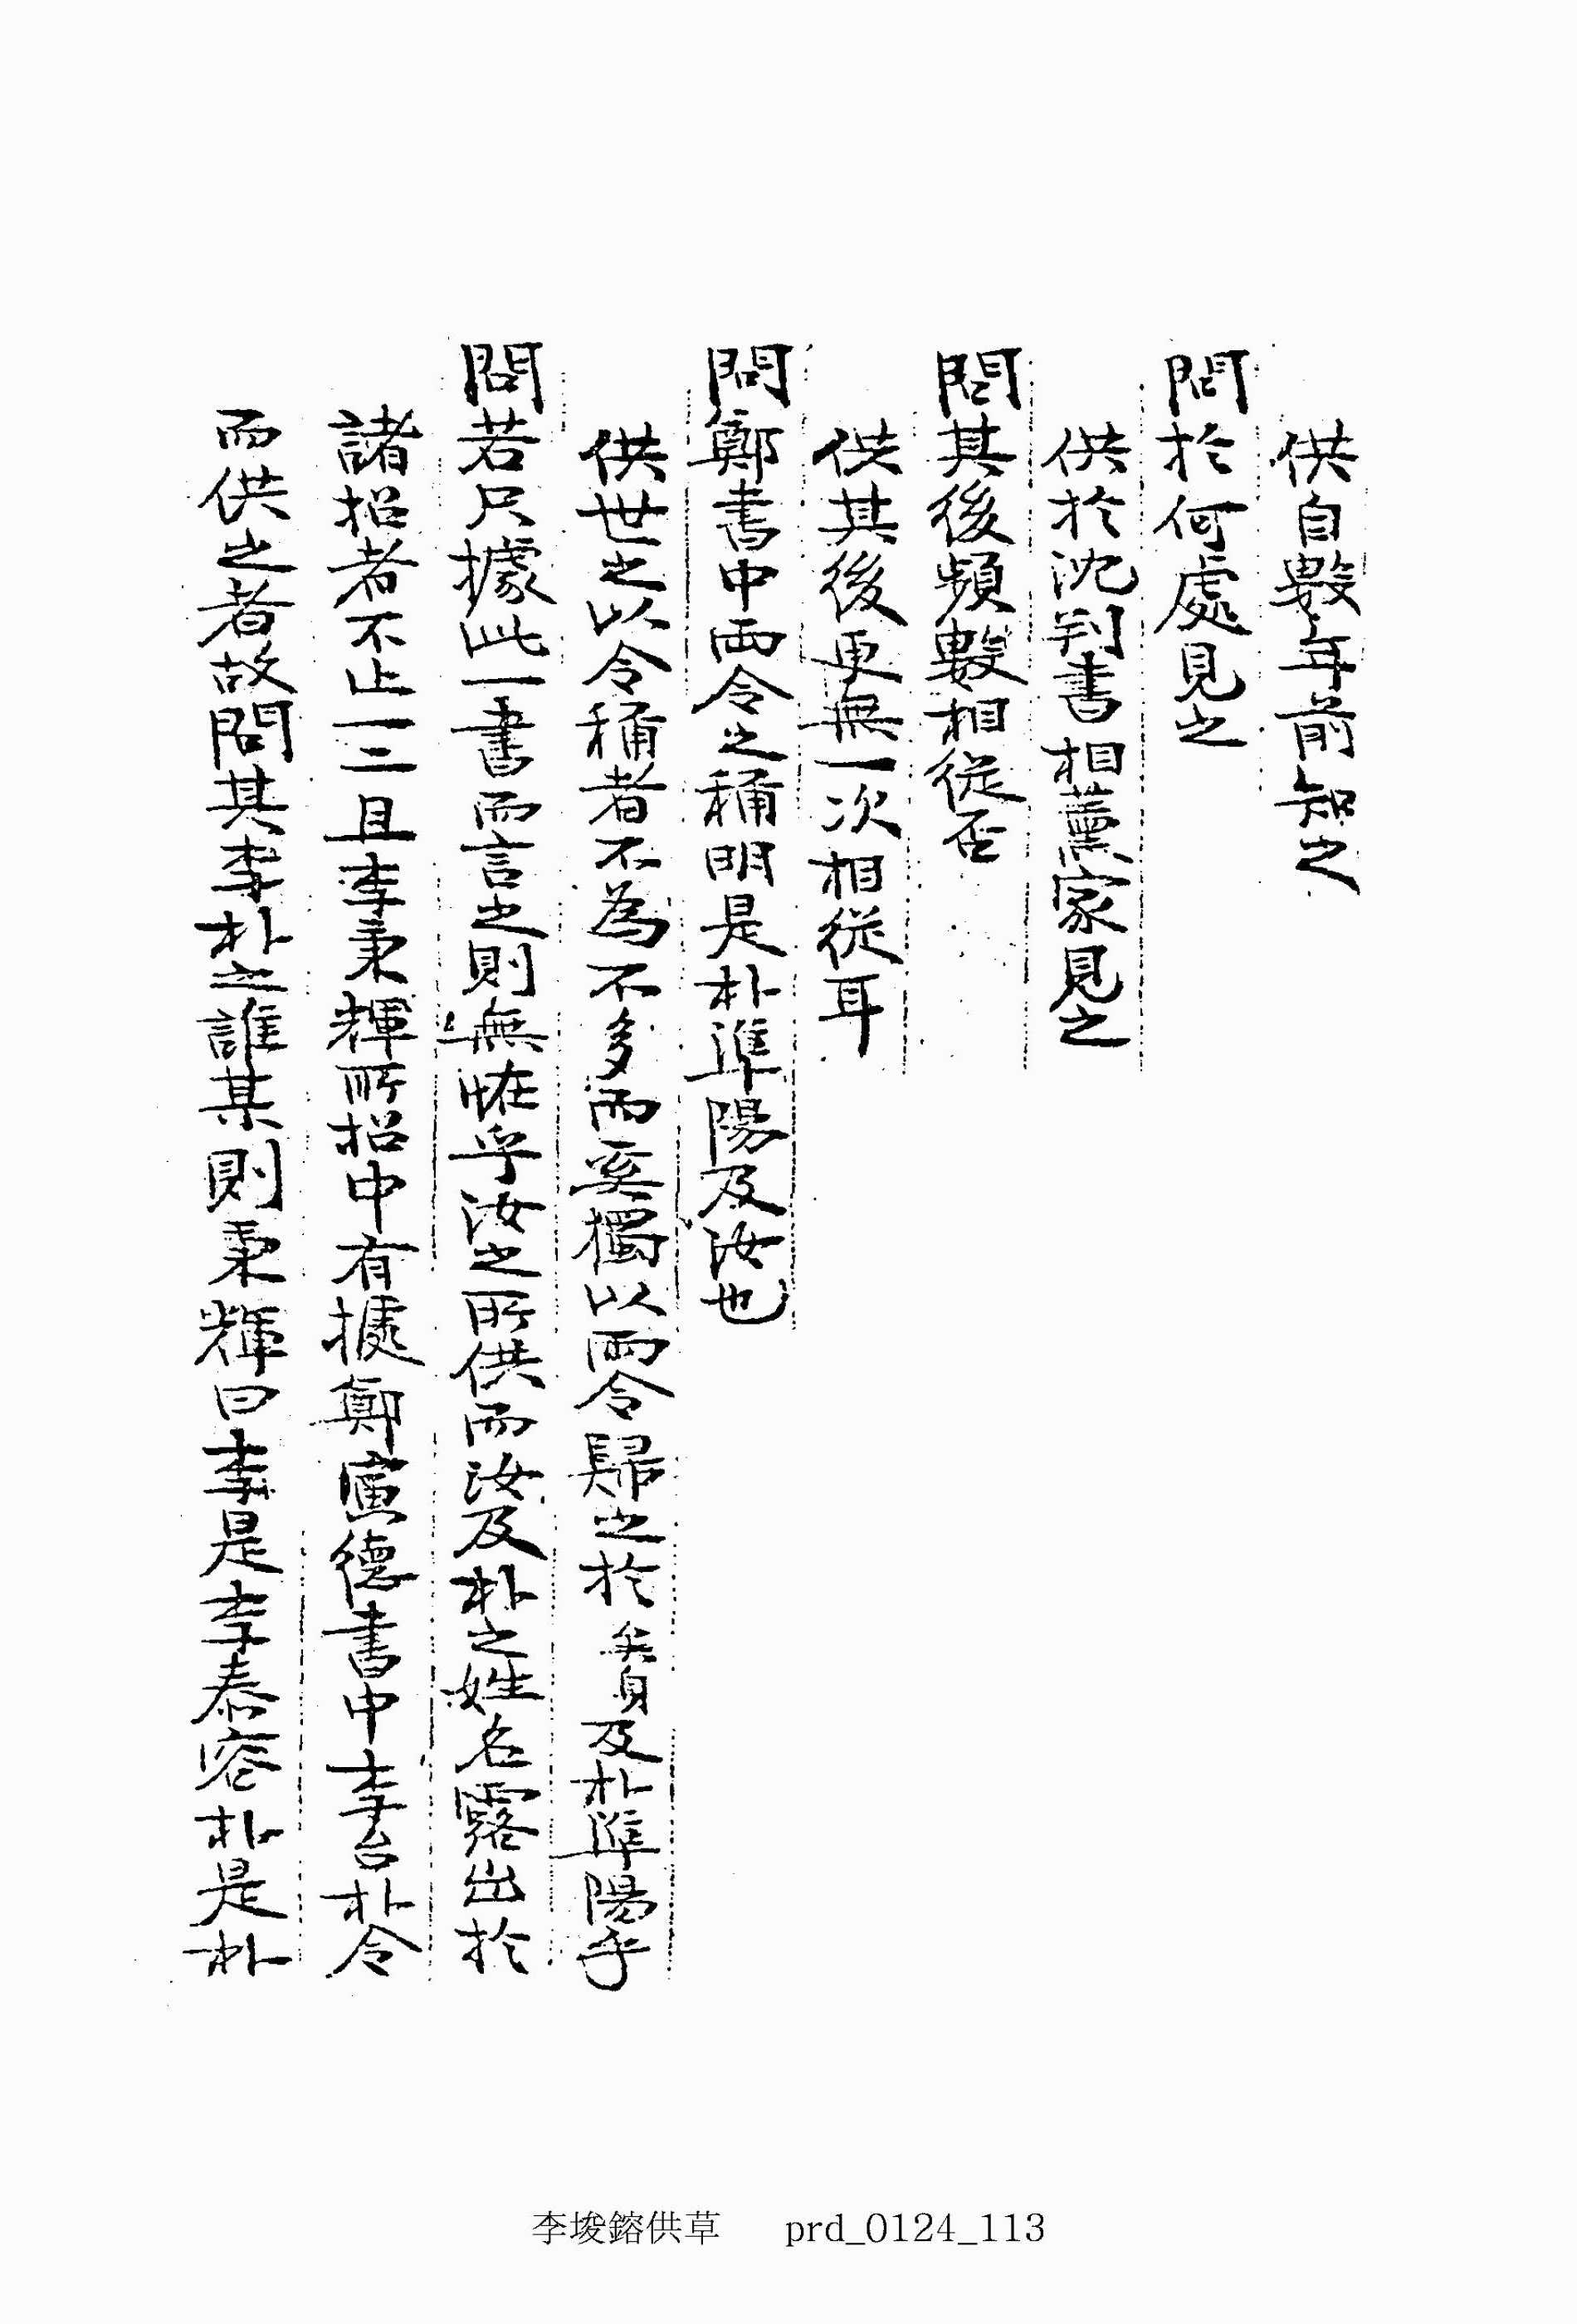 供自數年前知之
問於何處見之
供於沈判書相薰家見之
問其後頻數相從否
供其後更無一次相從耳
問鄭書中兩令之稱明是朴準陽及汝也
供世之以令稱者不為不多而奚獨以兩令歸之於矣身及朴準陽乎
問若只據此一書而言之則無恠乎汝之所供而汝及朴之姓名露出於
諸招者不止一二且李秉輝所招中有據鄭寅德書中李台朴令
而供之者故問其李朴之誰某則秉輝曰李是李泰容朴是朴
李埈鎔供草 prd_0124_113